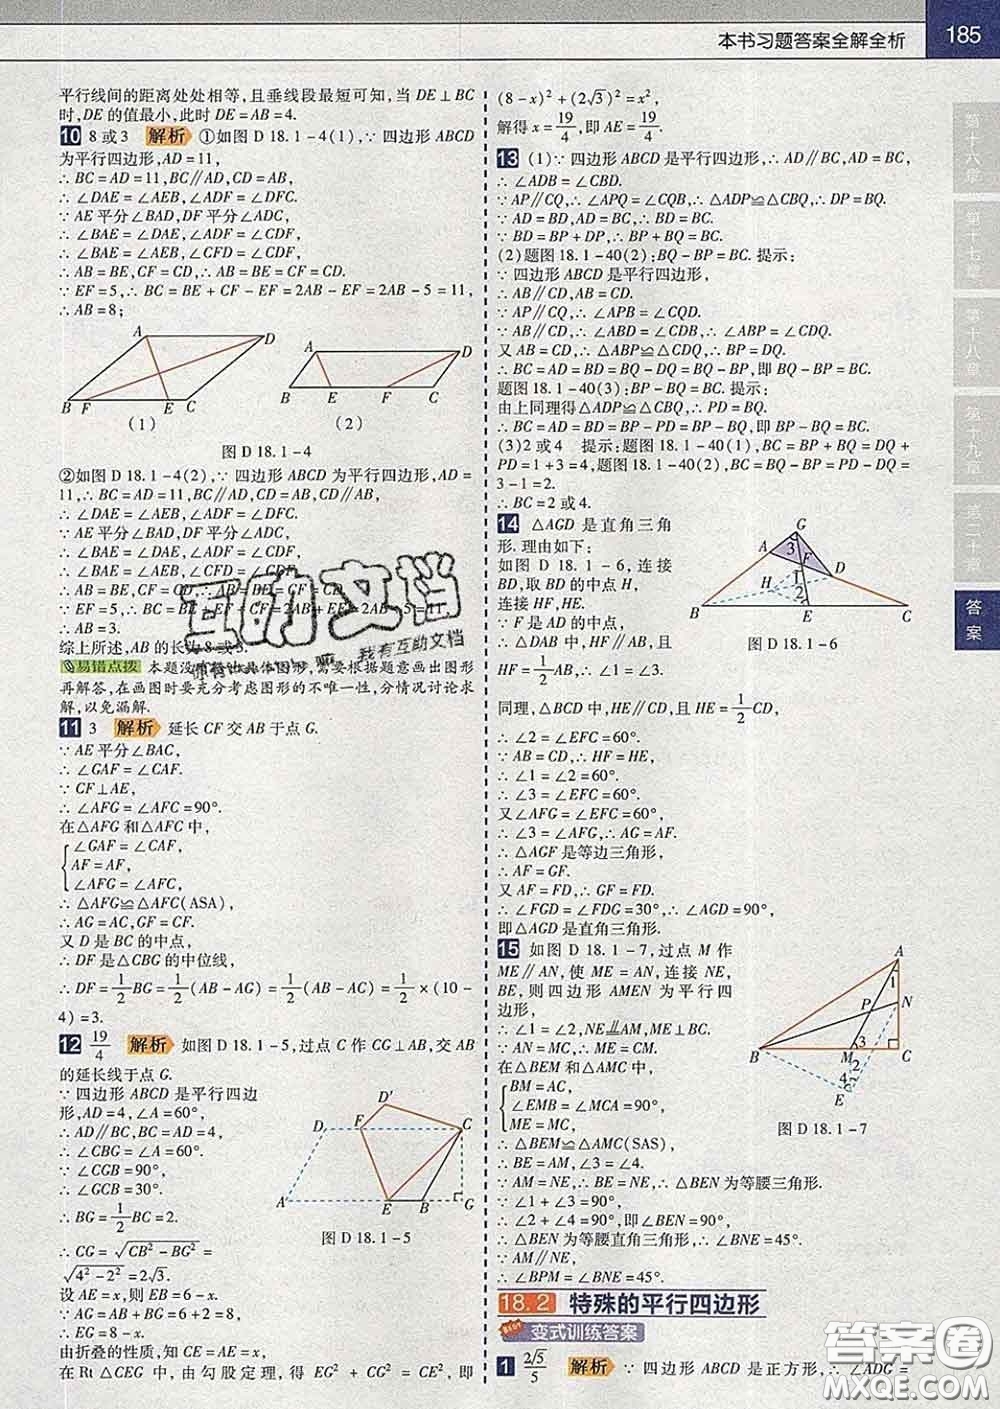 本书习题答案全解全析
185
平行线间的距离处处相等,且垂线段最短可知,当 DE⊥BC
时,DE 的值最小,此时 DE=AB=4.
10 8 或 3 解析 ①如图 D 18.1-4(1),∵ 四边形 ABCD
为平行四边形,AD=11,
∴ BC=AD=11,BC∥AD,CD=AB,
∴ ∠DAE=∠AEB,∠ADF=∠DFC.
∵ AE 平分∠BAD,DF 平分∠ADC,
∴ ∠BAE=∠DAE,∠ADF=∠CDF,
∴ ∠BAE=∠AEB,∠CFD=∠CDF,
∴ AB=BE,CF=CD,∴ AB=BE=CF=CD.
∵ EF=5,∴ BC=BE+CF-EF=2AB-EF=2AB-5=11,
∴ AB=8;
A
D
B
F
E
C
(1)
A
D
B
E
F
C
(2)
图 D 18.1-4
②如图 D 18.1-4(2),∵ 四边形 ABCD 为平行四边形,AD=
11,∴ BC=AD=11,BC∥AD,CD=AB,CD∥AB,
∴ ∠DAE=∠AEB,∠ADF=∠DFC.
∵ AE 平分∠BAD,DF 平分∠ADC,
∴ ∠BAE=∠DAE,∠ADF=∠CDF,
∴ AB=3.
综上所述,AB 的长为 8 或 3.
易错点拨 本题没有给出具体图形,需要根据题意画出图形
再解答,在画图时要充分考虑图形的不唯一性,分情况讨论求
解,以免漏解.
11 3 解析 延长 CF 交 AB 于点 G.
∵ AE 平分∠BAC,
∴ ∠GAF=∠CAF.
∵ CF⊥AE,
∴ ∠AFG=∠AFC=90°.
在△AFG 和△AFC 中,
∠GAF=∠CAF,
AF=AF,
∠AFG=∠AFC,
∴ △AFG≌△AFC(ASA),
∴ AG=AC,GF=CF.
又 D 是 BC 的中点,
∴ DF 是△CBG 的中位线,
∴ DF=1/2BG=1/2(AB-AG)=1/2(AB-AC)=1/2×(10-
4)=3.
12 19/4 解析 如图 D 18.1-5,过点 C 作 CG⊥AB,交 AB
的延长线于点 G.
∵ 四边形 ABCD 是平行四边
形,AD=4,∠A=60°,
∴ AD∥BC,BC=AD=4,
∴ ∠CBG=∠A=60°.
∵ ∠CGB=90°,
∴ ∠GCB=30°.
∴ BG=1/2BC=2.
∴ CG=√(CB²-BG²)=
√(4²-2²)=2√3.
设 AE=x,则 EB=6-x.
∵ AG=AB+BG=6+2=8,
∴ EG=8-x.
由折叠的性质,知 CE=AE=x.
在 Rt△CEG 中,由勾股定理,得 EG²+CG²=CE²,即
D'
D
F
C
A
E
B
G
图 D 18.1-5
(8-x)²+(2√3)²=x²,
解得 x=19/4,即 AE=19/4.
13 (1)∵ 四边形 ABCD 是平行四边形,∴ AD∥BC,AD=BC,
∴ ∠ADB=∠CBD.
∵ AP∥CQ,∴ ∠APQ=∠CQB,∴ △ADP≌△CBQ,∴ DP=BQ.
∵ AD=BD,AD=BC,∴ BD=BC.
∵ BD=BP+DP,∴ BP+BQ=BC.
(2)题图 18.1-40(2):BQ-BP=BC. 提示:
∵ 四边形 ABCD 是平行四边形,
∴ AB∥CD,AB=CD.
∵ AP∥CQ,∴ ∠APB=∠CQD.
∵ AB∥CD,∴ ∠ABD=∠CDB,∴ ∠ABP=∠CDQ.
又 AB=CD,∴ △ABP≌△CDQ,∴ BP=DQ.
∴ BC=AD=BD=BQ-DQ=BQ-BP,即 BQ-BP=BC.
题图 18.1-40(3):BP-BQ=BC. 提示:
由上同理得△ADP≌△CBQ,∴ PD=BQ.
∴ BC=AD=BD=BP-PD=BP-BQ,即 BP-BQ=BC.
(3)2 或 4 提示:题图 18.1-40(1),BC=BP+BQ=DQ+
PD=1+3=4,题图 18.1-40(2),BC=BQ-BP=PD-BP=
3-1=2.
∴ BC=2 或 4.
14 △AGD 是直角三角
形. 理由如下:
如图 D 18.1-6,连接
BD,取 BD 的中点 H,
连接 HF,HE.
∵ F 是 AD 的中点,
∴ △DAB 中,HF∥AB,且
HF=1/2AB.
G
A
3
F
D
H
1
2
B
E
C
图 D 18.1-6
同理,△BCD 中,HE∥CD,且 HE=1/2CD,
∴ ∠2=∠EFC=60°.
∵ AB=CD,∴ HF=HE.
∴ ∠1=∠2=60°.
∴ ∠3=∠EFC=60°.
又∠AFG=∠EFC=60°,
∴ ∠3=∠AFG,∴ AG=AF.
∴ △AGF 是等边三角形,
∴ AF=GF.
又 AF=FD,∴ GF=FD.
∴ ∠FGD=∠FDG=30°,∴ ∠AGD=90°,
即△AGD 是直角三角形.
15 如图 D 18.1-7,过点 M 作
ME∥AN,使 ME=AN,连接 NE,
BE,则四边形 AMEN 为平行四
边形,
∴ ∠1=∠2,NE⫽AM,ME⊥BC.
∵ AN=MC,∴ ME=MC.
在△BEM 和△AMC 中,
BM=AC,
∠EMB=∠MCA=90°,
ME=MC,
∴ △BEM≌△AMC(SAS),
∴ BE=AM,∠3=∠4.
∵ AM=NE,∴ BE=NE,∴ △BEN 为等腰三角形.
∵ ∠1+∠3=90°,
∴ ∠2+∠4=90°,即∠BEN=90°,
∴ △BEN 为等腰直角三角形,∴ ∠BNE=45°.
∵ AM∥NE,
∴ ∠BPM=∠BNE=45°.
A
1
P
N
B
M
3
C
2
4
E
图 D 18.1-7
18.2 特殊的平行四边形
变式训练答案
1 2√5/5 解析 ∵ 四边形 ABCD 是正方形,∴ ∠ADG=
第十六章
第十七章
第十八章
第十九章
第二十章
答案
互助文档
我有互助文档
答案圈
MXQE.COM